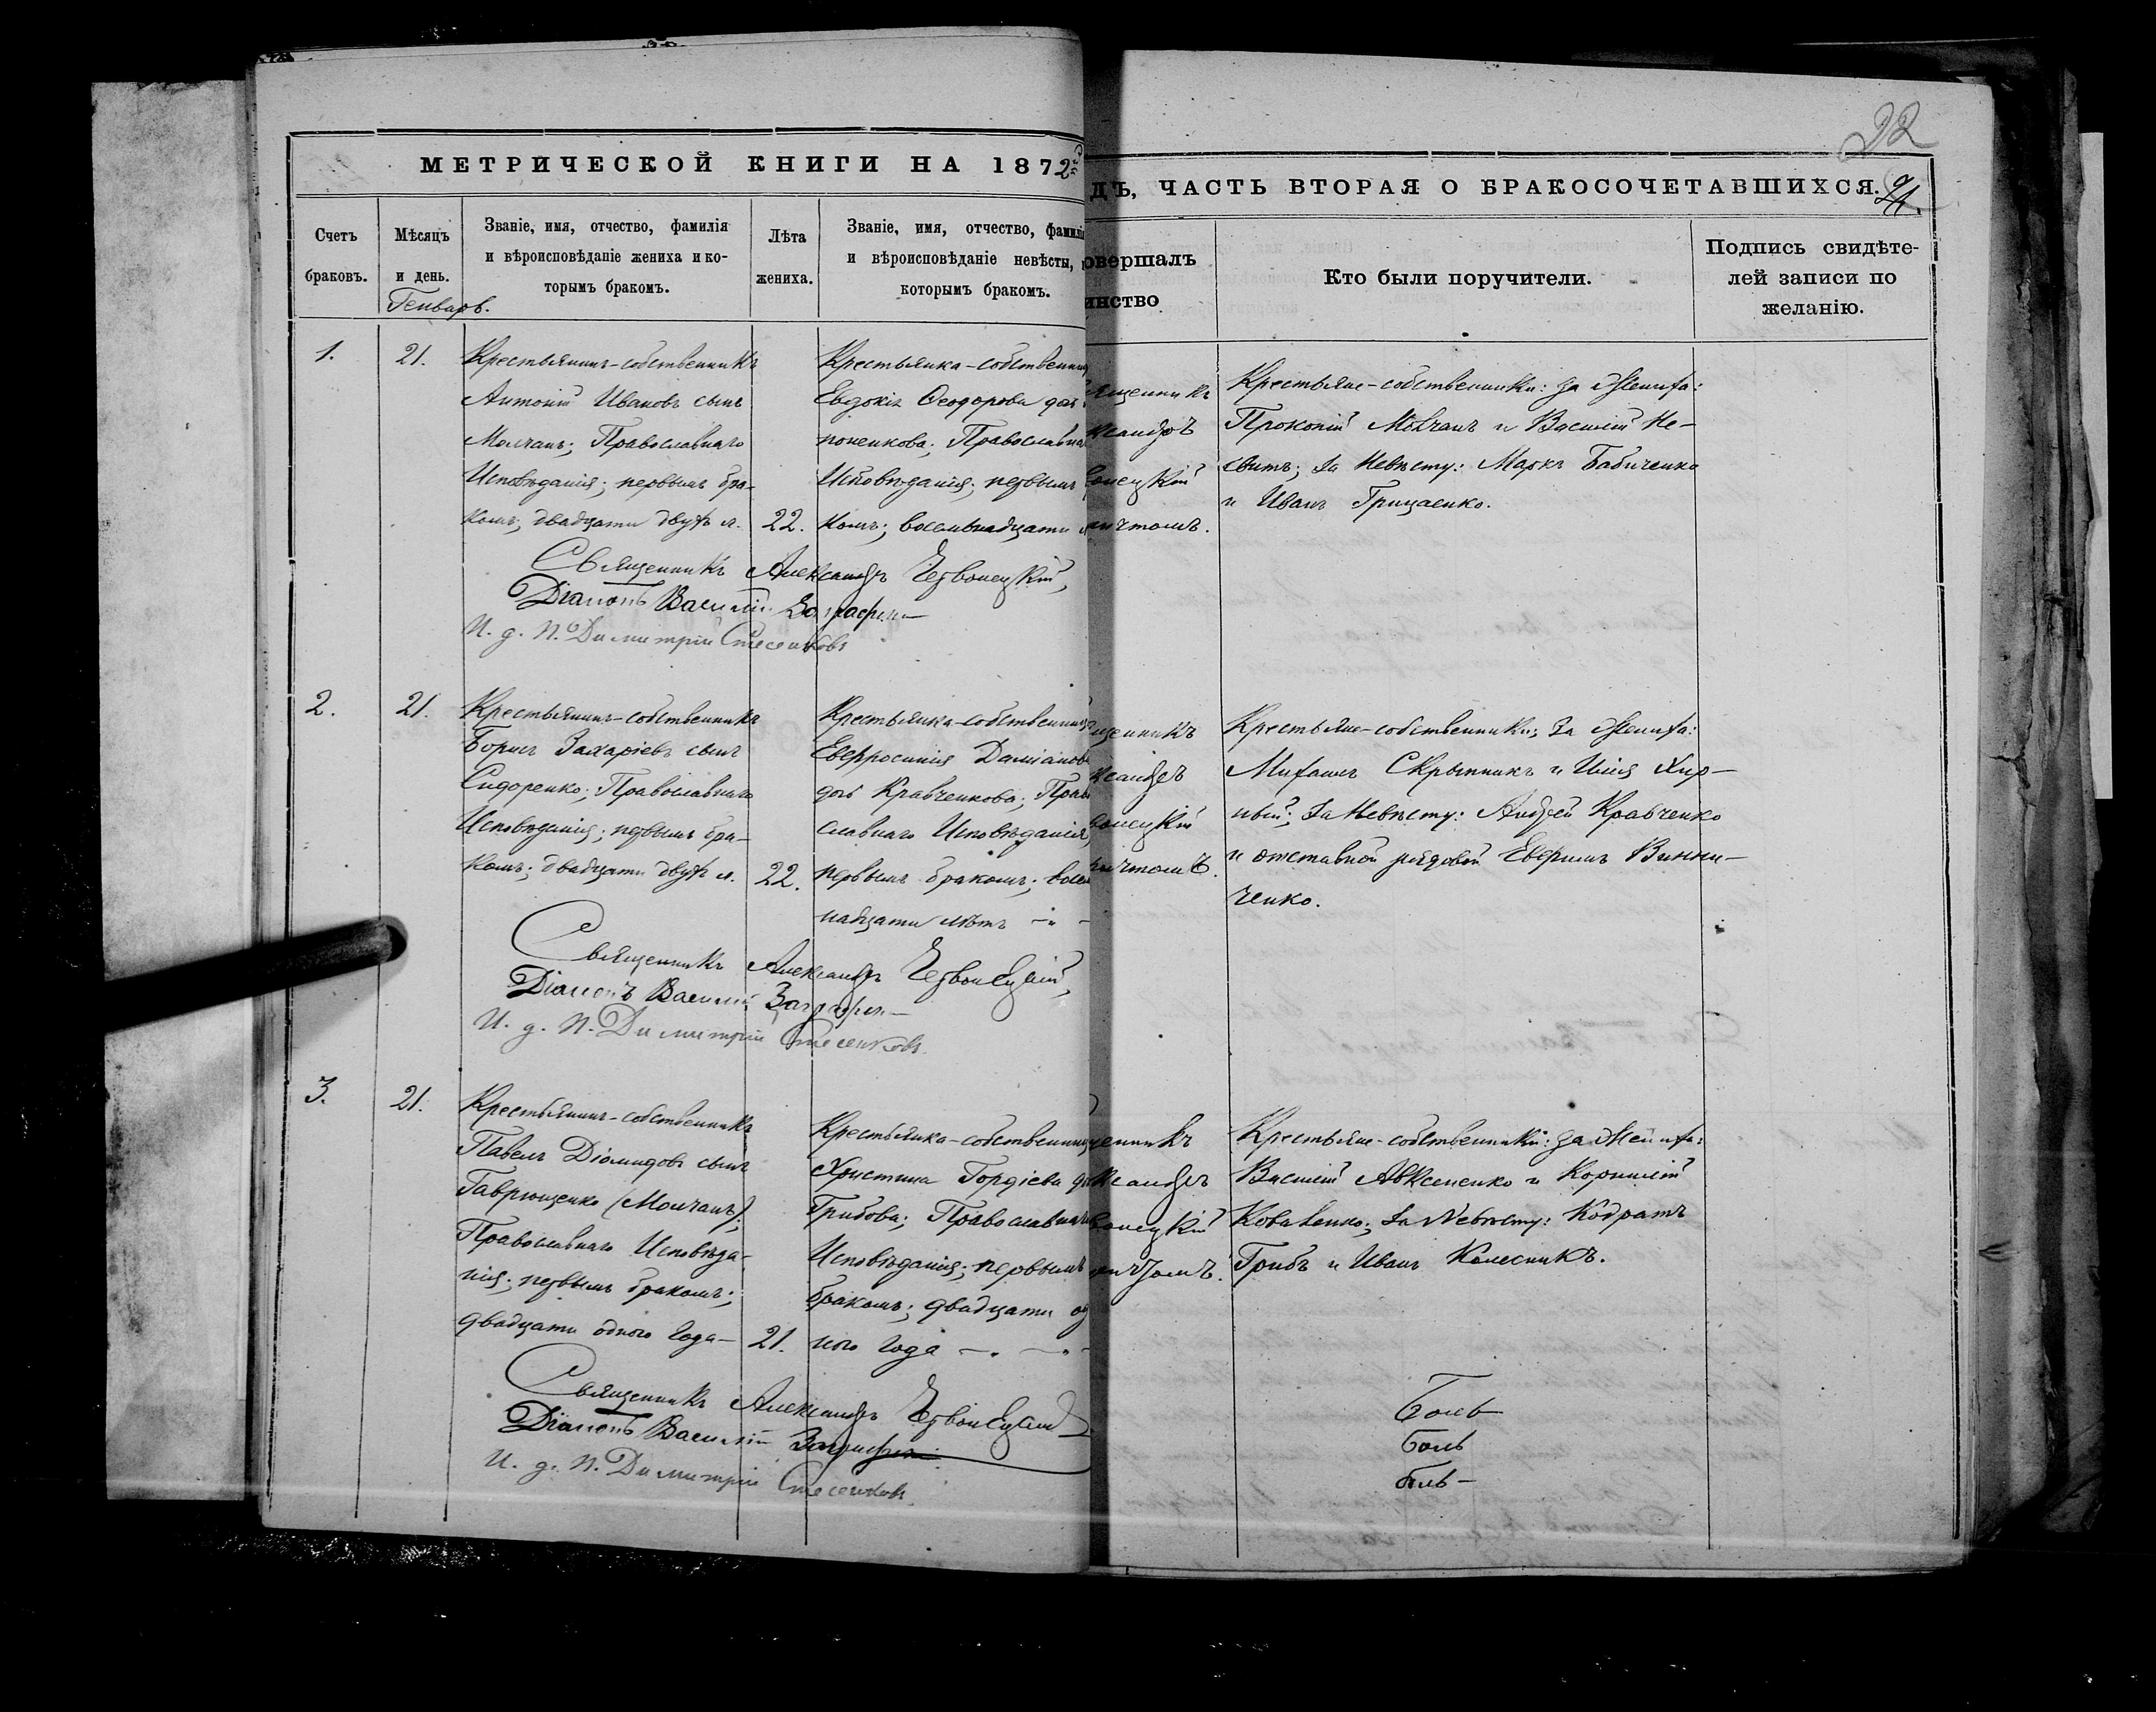 22
МЕТРИЧЕСКОЙ КНИГИ НА 1872
ДѢ, ЧАСТЬ ВТОРАЯ О БРАКОСОЧЕТАВШИХСЯ.
Счетъ браковъ.
Мѣсяцъ и день.
Званіе, имя, отчество, фамилія
и вѣроисповѣданіе жениха и ко-
торымъ бракомъ.
Лѣта жениха.
Званіе, имя, отчество, фамилі
и вѣроисповѣданіе невѣсты,
которымъ бракомъ.
овершалъ
инство
Кто были поручители.
Подпись свидѣте-
лей записи по
желанію.
Генваръ.
1.
21.
Крестьянинъ-собственникъ
Антоній Ивановъ сынъ
Молчанъ; Православнаго
Исповѣданія; первымъ бра-
комъ; двадцати двухъ л.
22.
Крестьянка-собственниц
Евдокія Ѳеодорова доч
поненкова; Православна
Исповѣданія; первымъ
комъ; восемьнадцати л
ященникъ
ксандръ
вонецкій
ичтомъ.
Крестьяне-собственники: За Жениха:
Прокопій Молчанъ и Василій Не-
свитъ; За Невѣсту: Марко Бабиченко
и Иванъ Грицаенко.
Священникъ Александръ Червонецкій,
Діаконъ Василій
И. д. П. Димитрій Стесенковъ
2.
21.
Крестьянинъ-собственникъ
Борисъ Захаріевъ сынъ
Сидоренко; Православнаго
Исповѣданія; первымъ бра-
комъ; двадцати двухъ л.
22.
Крестьянка-собственниц
Евфросинія Даміанов
дочь Кравченкова; Прав
славнаго Исповѣданія,
первымъ бракомъ; восем
надцати лѣтъ
щенникъ
ксандръ
вонецкій
ичтомъ.
Крестьяне-собственники; За Жениха:
Михаилъ Скрынникъ и Илія Хир-
ный; За Невѣсту: Андрей Кравченко
и отставной рядовой Ефримъ Винни-
ченко.
Священникъ Александръ Червонецкій,
Діаконъ Василій
И. д. П. Димитрій Стесенковъ.
3.
21.
Крестьянинъ-собственникъ
Павелъ Діомидовъ сынъ
Гаврющенко (Молчанъ);
Православнаго Исповѣда-
нія; первымъ бракомъ;
двадцати одного года
21.
Крестьянка-собственниц
Христина Гордіева до
Грибова; Православнаго
Исповѣданія; первымъ
бракомъ; двадцати од
ного года
щенникъ
ксандръ
вонецкій
ичтомъ.
Крестьяне-собственники: За Жениха:
Василій Авксененко и Корнилій
Коваленко; За Невѣсту: Кодратъ
Грибъ и Иванъ Колесникъ.
Священникъ Александръ Червонецкій
Діаконъ Василій
И. д. П. Димитрій Стесенковъ.